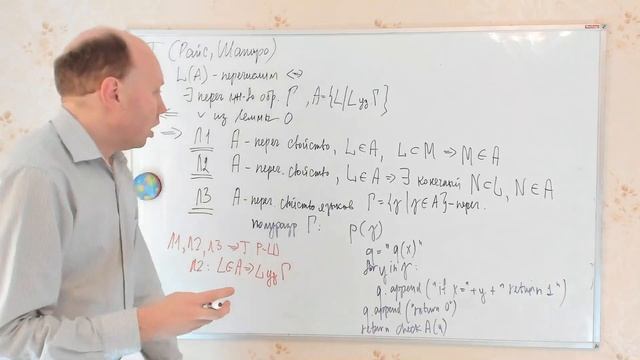 Т (Райс, Шапиро)
L(A) - перечислим ⇔
∃ переч мн-во обр. Γ, A={L | L уд Γ}
⇐ ∨ из Леммы 0
⇒ Л1 A - переч свойство, L∈A, L⊂M ⇒ M∈A
Л2 A - переч. свойство, L∈A ⇒ ∃ конечный N⊂L, N∈A
Л3 A - переч. свойство языков Γ={γ | γ∈A} - переч.
Γ: p(γ)
Л1, Л2, Л3 ⇒ Т Р-Ш
Л2: L∈A ⇒ L уд Γ
q="q(x)"
for y in γ:
q.append("if x="+y+" return 1")
q.append("return 0")
return checkA(q)